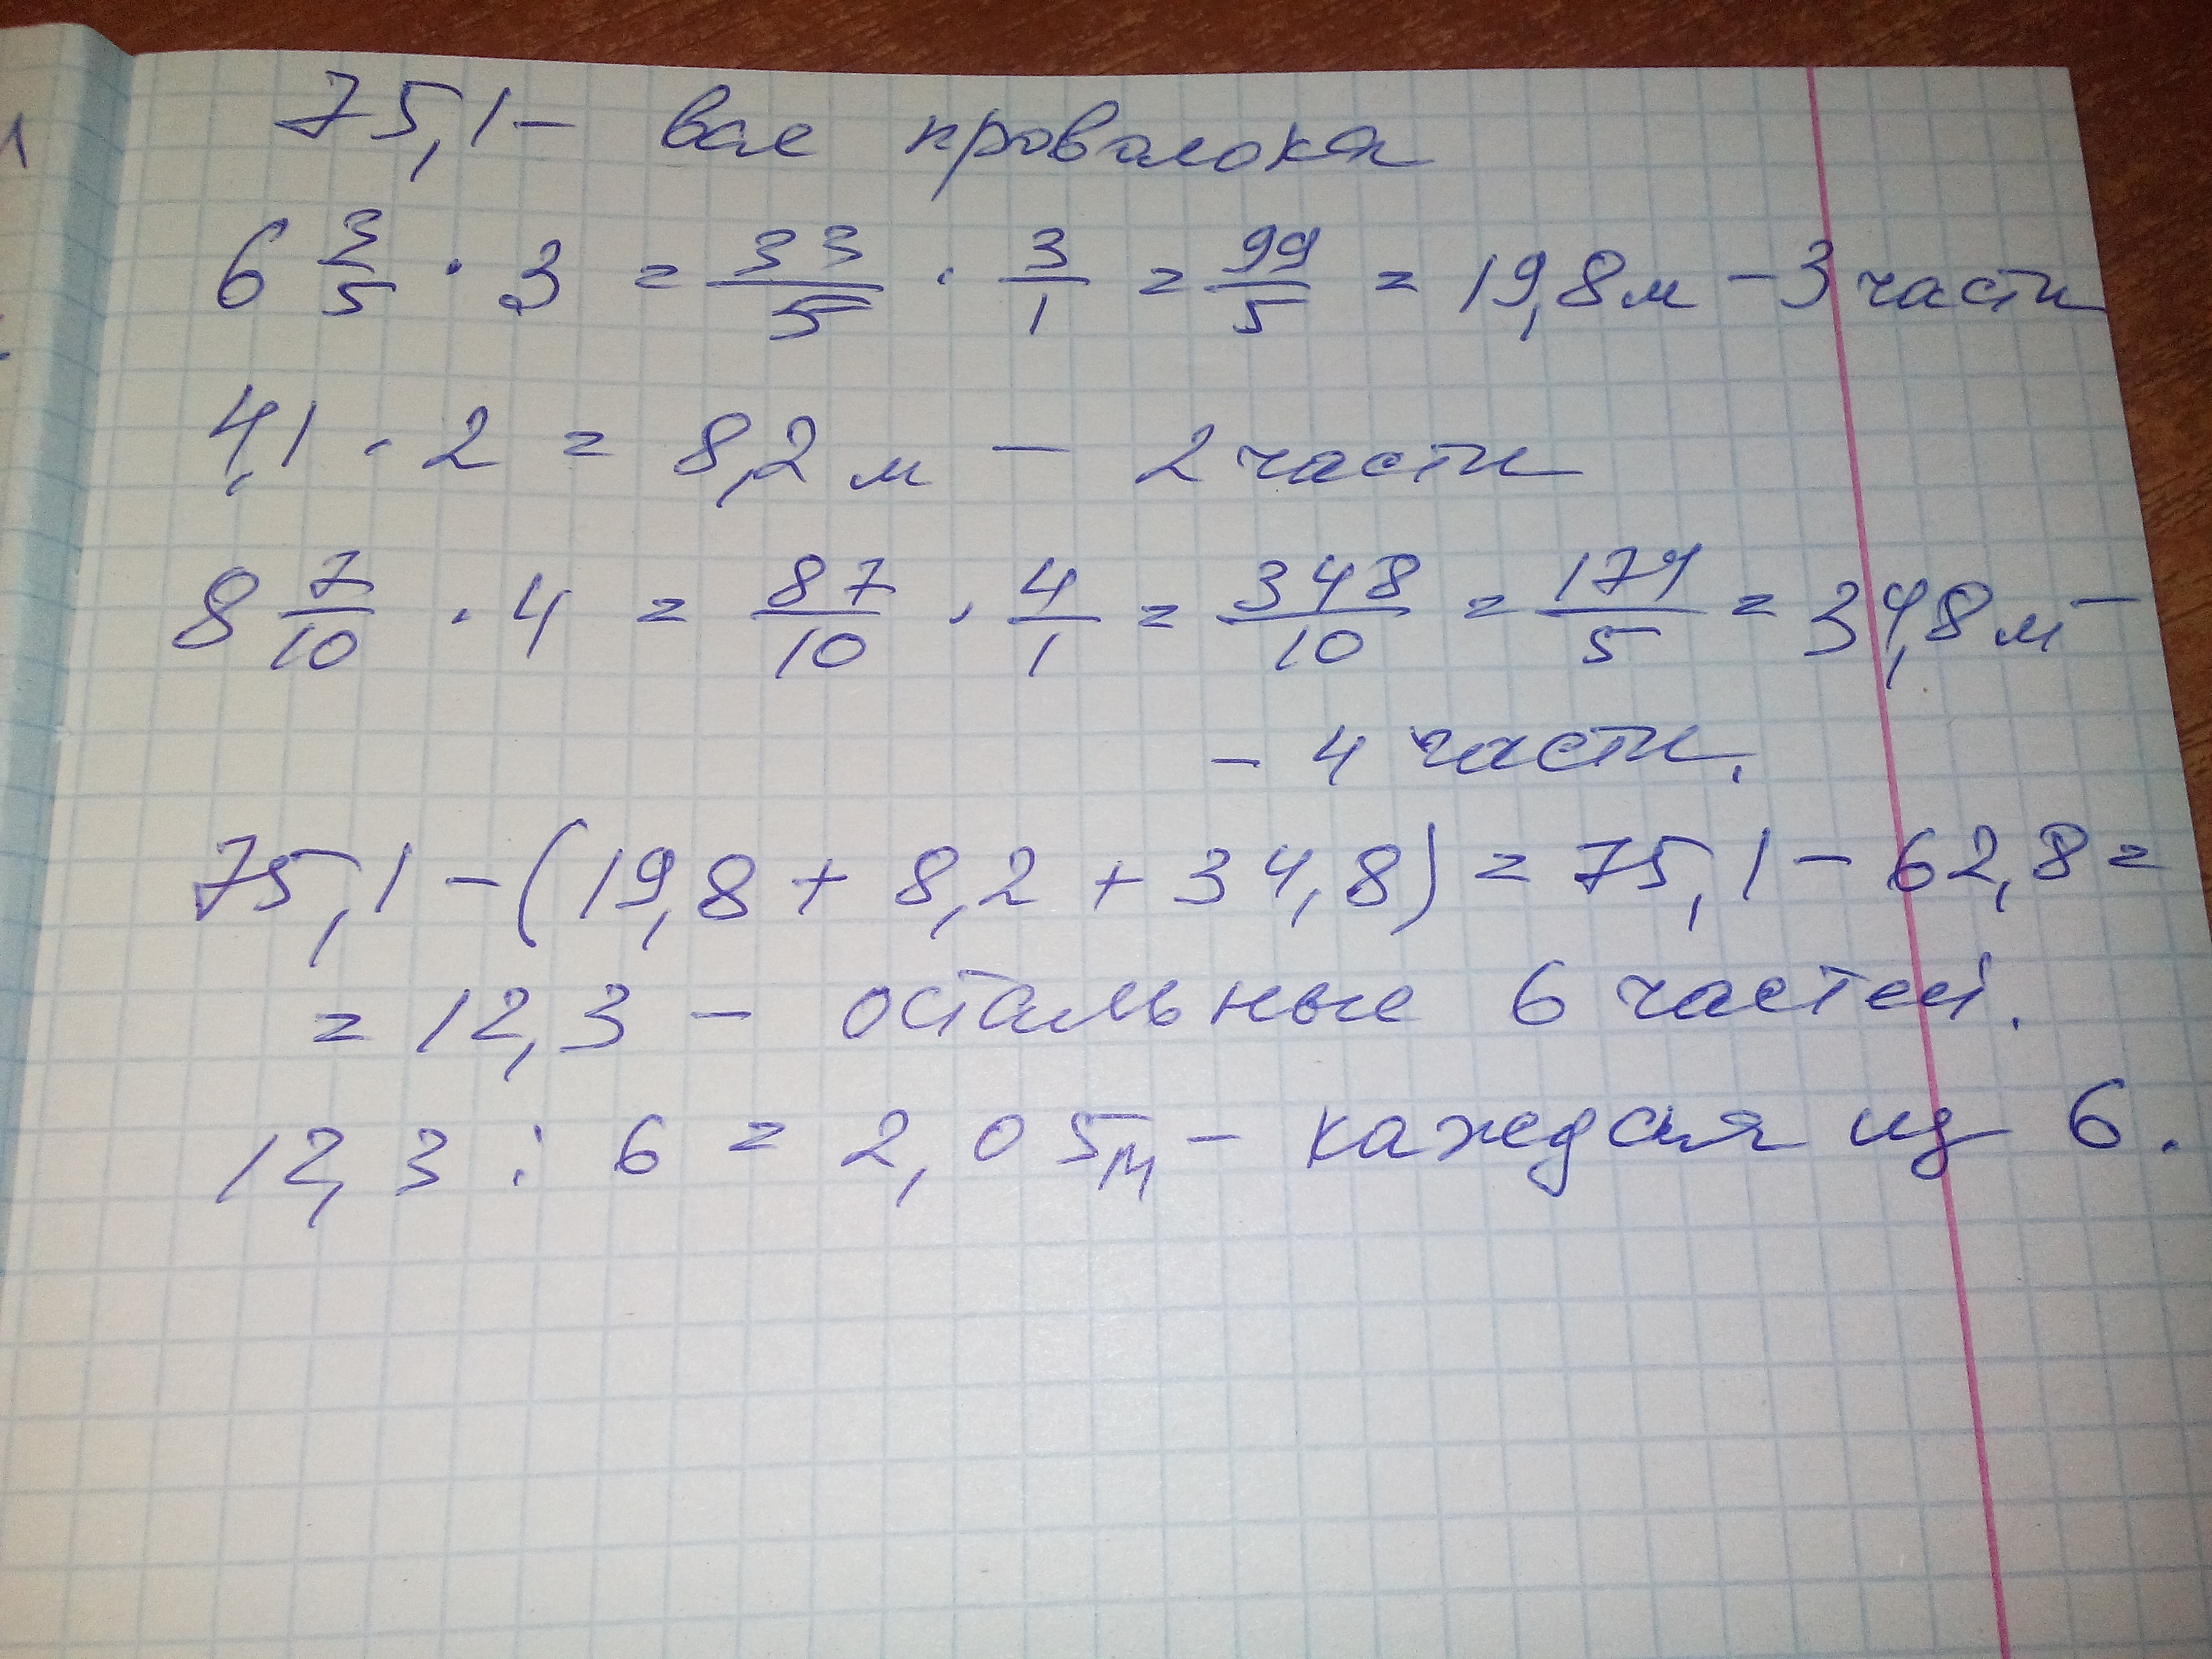 75,1 - вся проволока
6 3/5 · 3 = 33/5 · 3/1 = 99/5 = 19,8 м - 3 части
4,1 · 2 = 8,2 м - 2 части
8 7/10 · 4 = 87/10 · 4/1 = 348/10 = 174/5 = 34,8 м -
- 4 части.
75,1 - (19,8 + 8,2 + 34,8) = 75,1 - 62,8 =
= 12,3 - остальные 6 частей.
12,3 : 6 = 2,05 м - каждая из 6.